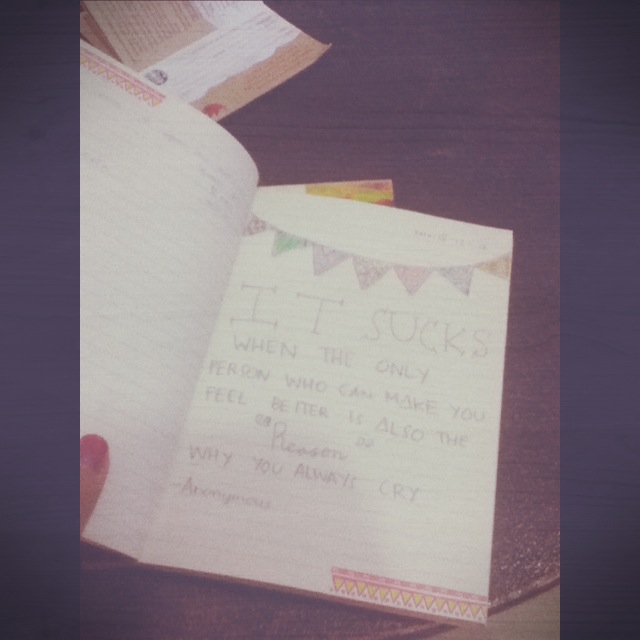 IT SUCKS
WHEN THE ONLY
PERSON WHO CAN MAKE YOU
FEEL BETTER IS ALSO THE
Reason
WHY YOU ALWAYS CRY
-Anonymous